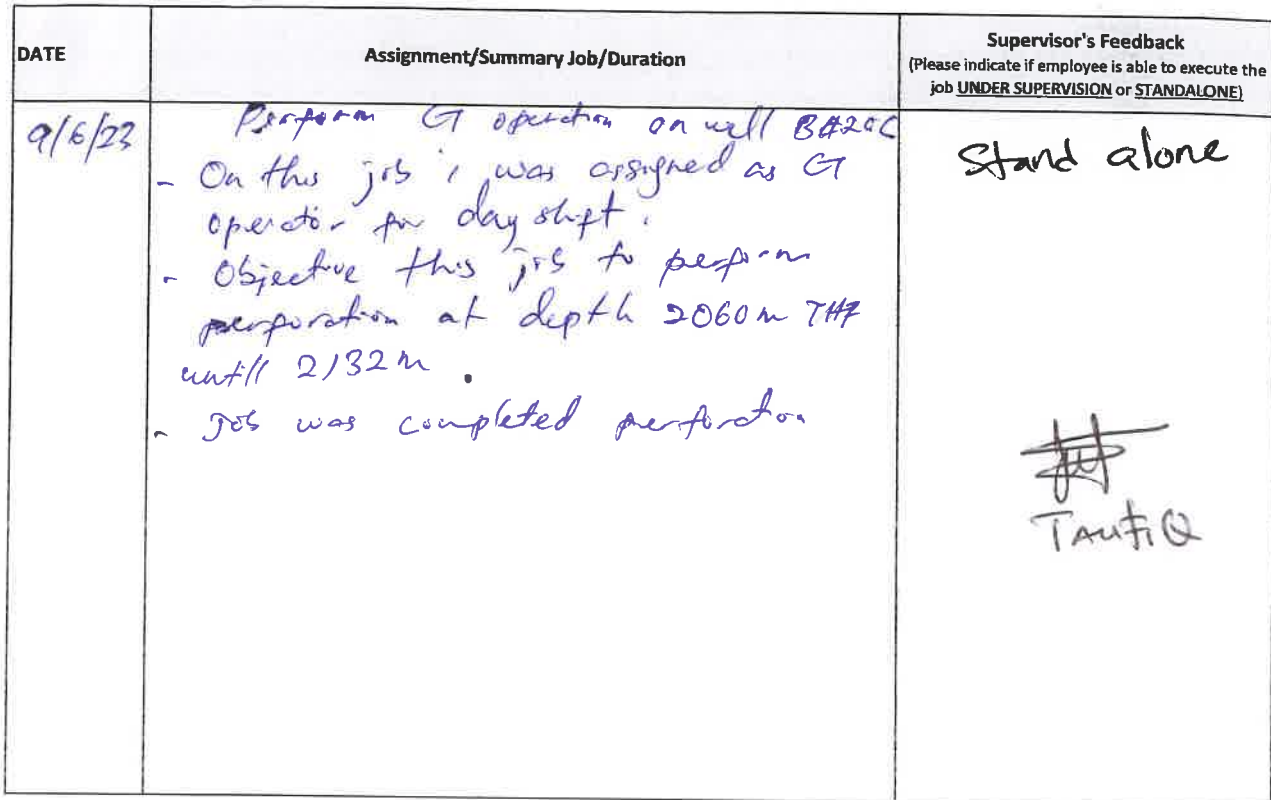 DATE
Assignment/Summary Job/Duration
Supervisor's Feedback
(Please indicate if employee is able to execute the
job UNDER SUPERVISION or STANDALONE)
9/6/23
Perform CT operation on well
- On this job i was assigned as CT
operator for day shift.
- Objective this job to perform
perforation at depth 2060m THF
untill 2132m.
- Job was completed perforation
Stand alone
TAUFIQ